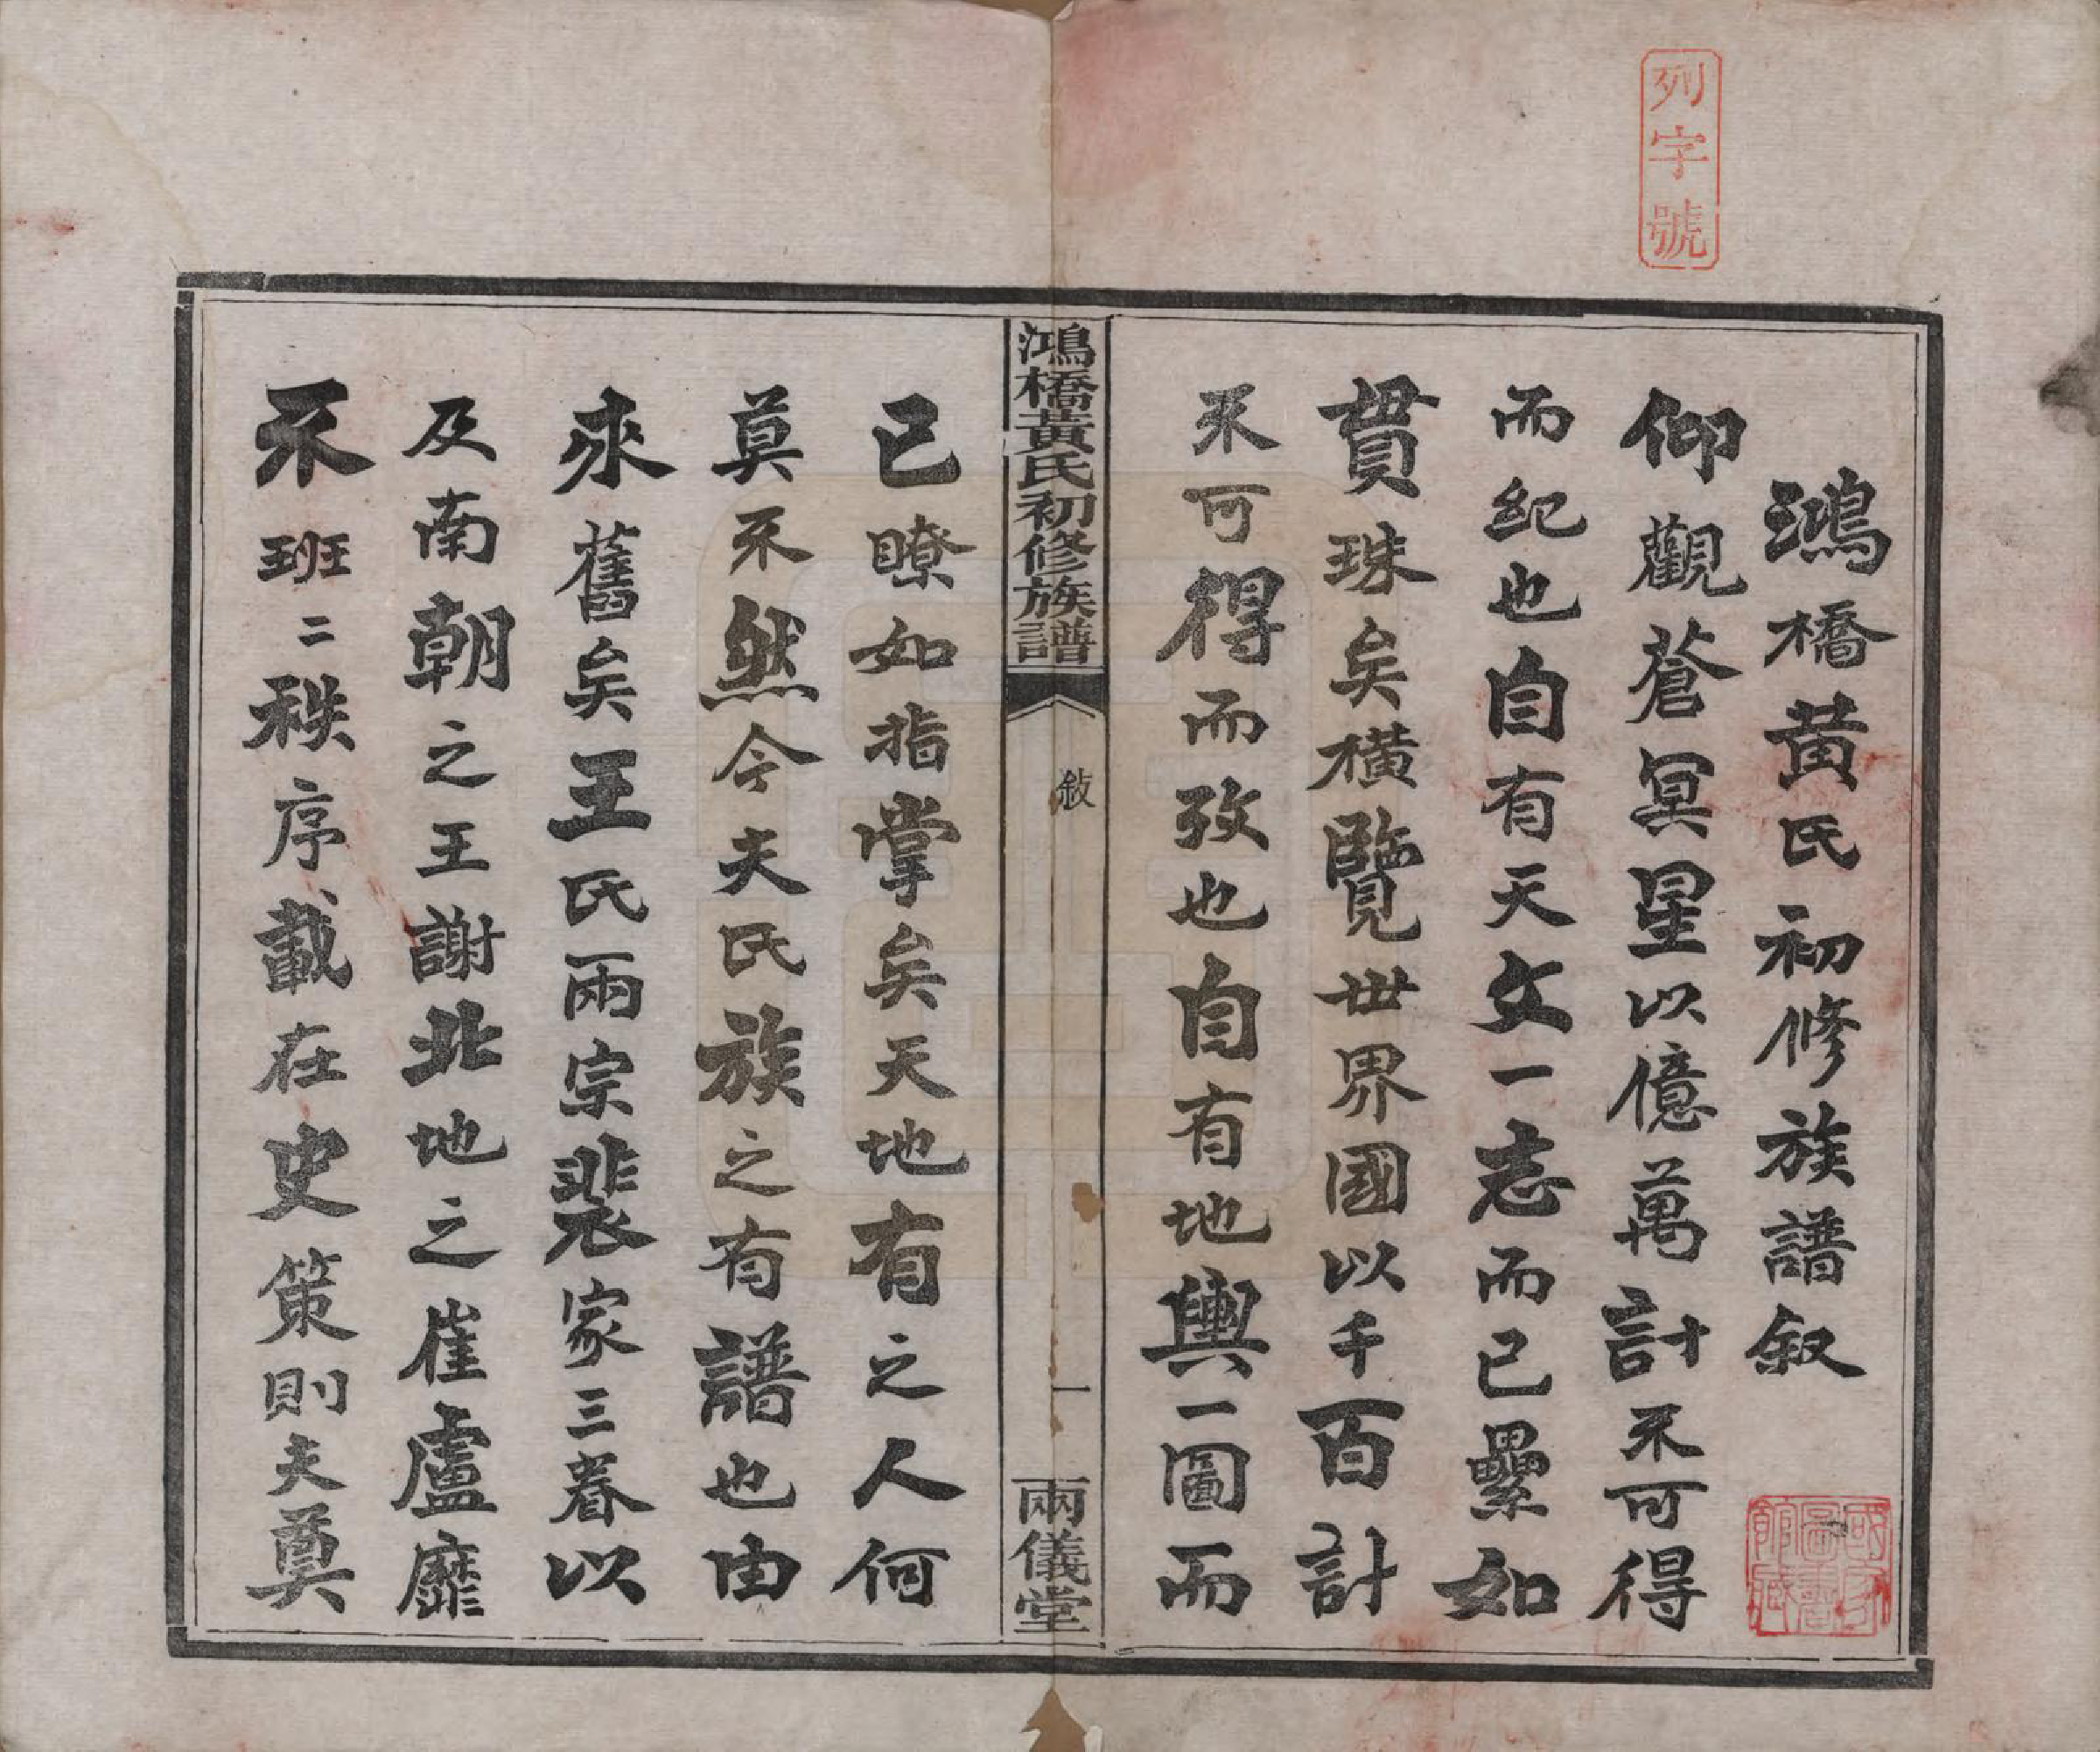 列字號
鴻橋黄氏初修族譜叙
仰觀蒼冥星以億萬計不可得
而紀也自有天文一志而已纍如
貫珠矣橫覽世界國以千百計
不可得而攷也自有地輿一圖而
鴻橋黃氏初修族譜
敍
一
兩儀堂
已瞭如指掌矣天地有之人何
莫不然今夫氏族之有譜也由
來舊矣王氏兩宗裴家三眷以
及南朝之王謝北地之崔盧靡
不班二秩序載在史策則夫奠
國家圖書館藏